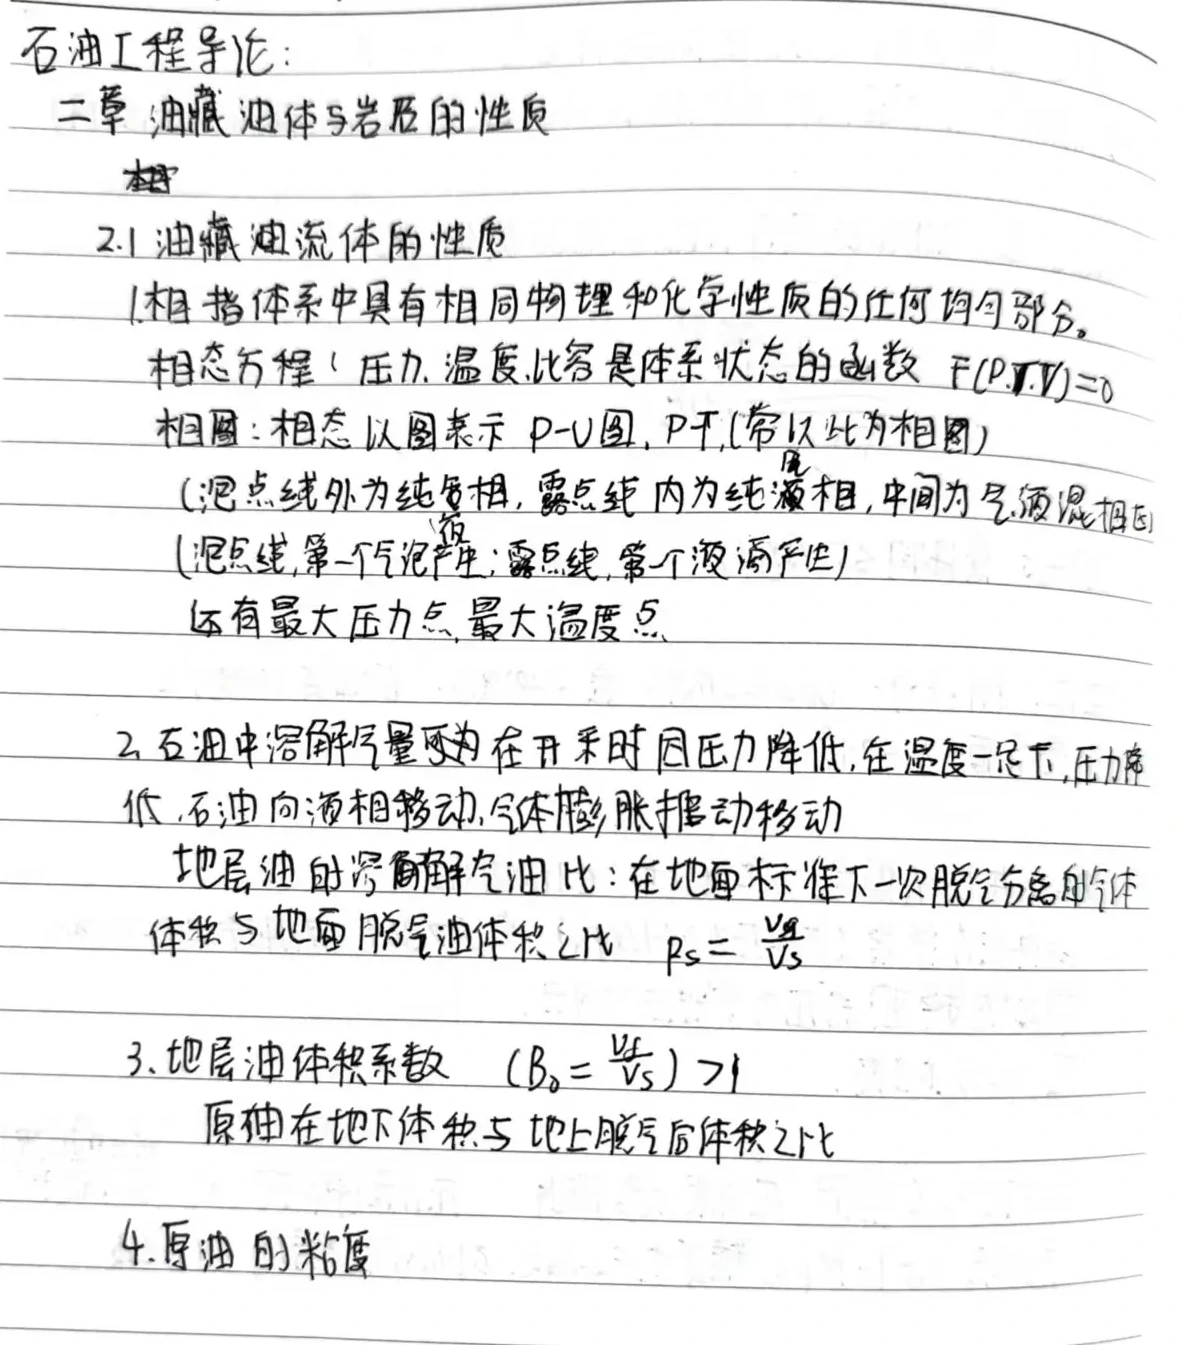 石油工程导论:
二章 油藏油体与岩石的性质
2.1 油藏油流体的性质
1.相 指体系中具有相同物理和化学性质的任何均匀部分。
相态方程: 压力、温度、比容是体系状态的函数 F(P.T.V)=0
相图:相态以图表示 P-V图, P-T,(常以此为相图)
(泡点线外为纯液相, 露点线内为纯气相, 中间为气液混相区)
(泡点线,第一个气泡产生; 露点线,第一个液滴产生)
还有最大压力点,最大温度点
2、石油中溶解气量 在开采时因压力降低,在温度一定下,压力降
低,石油向液相移动,气体膨胀推动移动
地层油的溶解气油比:在地面标准下一次脱气分离的气体
体积与地面脱气油体积之比 Rs = Vg/Vs
3、地层油体积系数 (Bo = Vf/Vs) >1
原油在地下体积与地上脱气后体积之比
4.原油的粘度